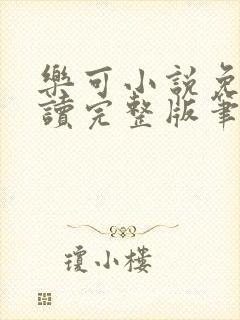 樂可小說免
讀完整版筆
瓊小樓